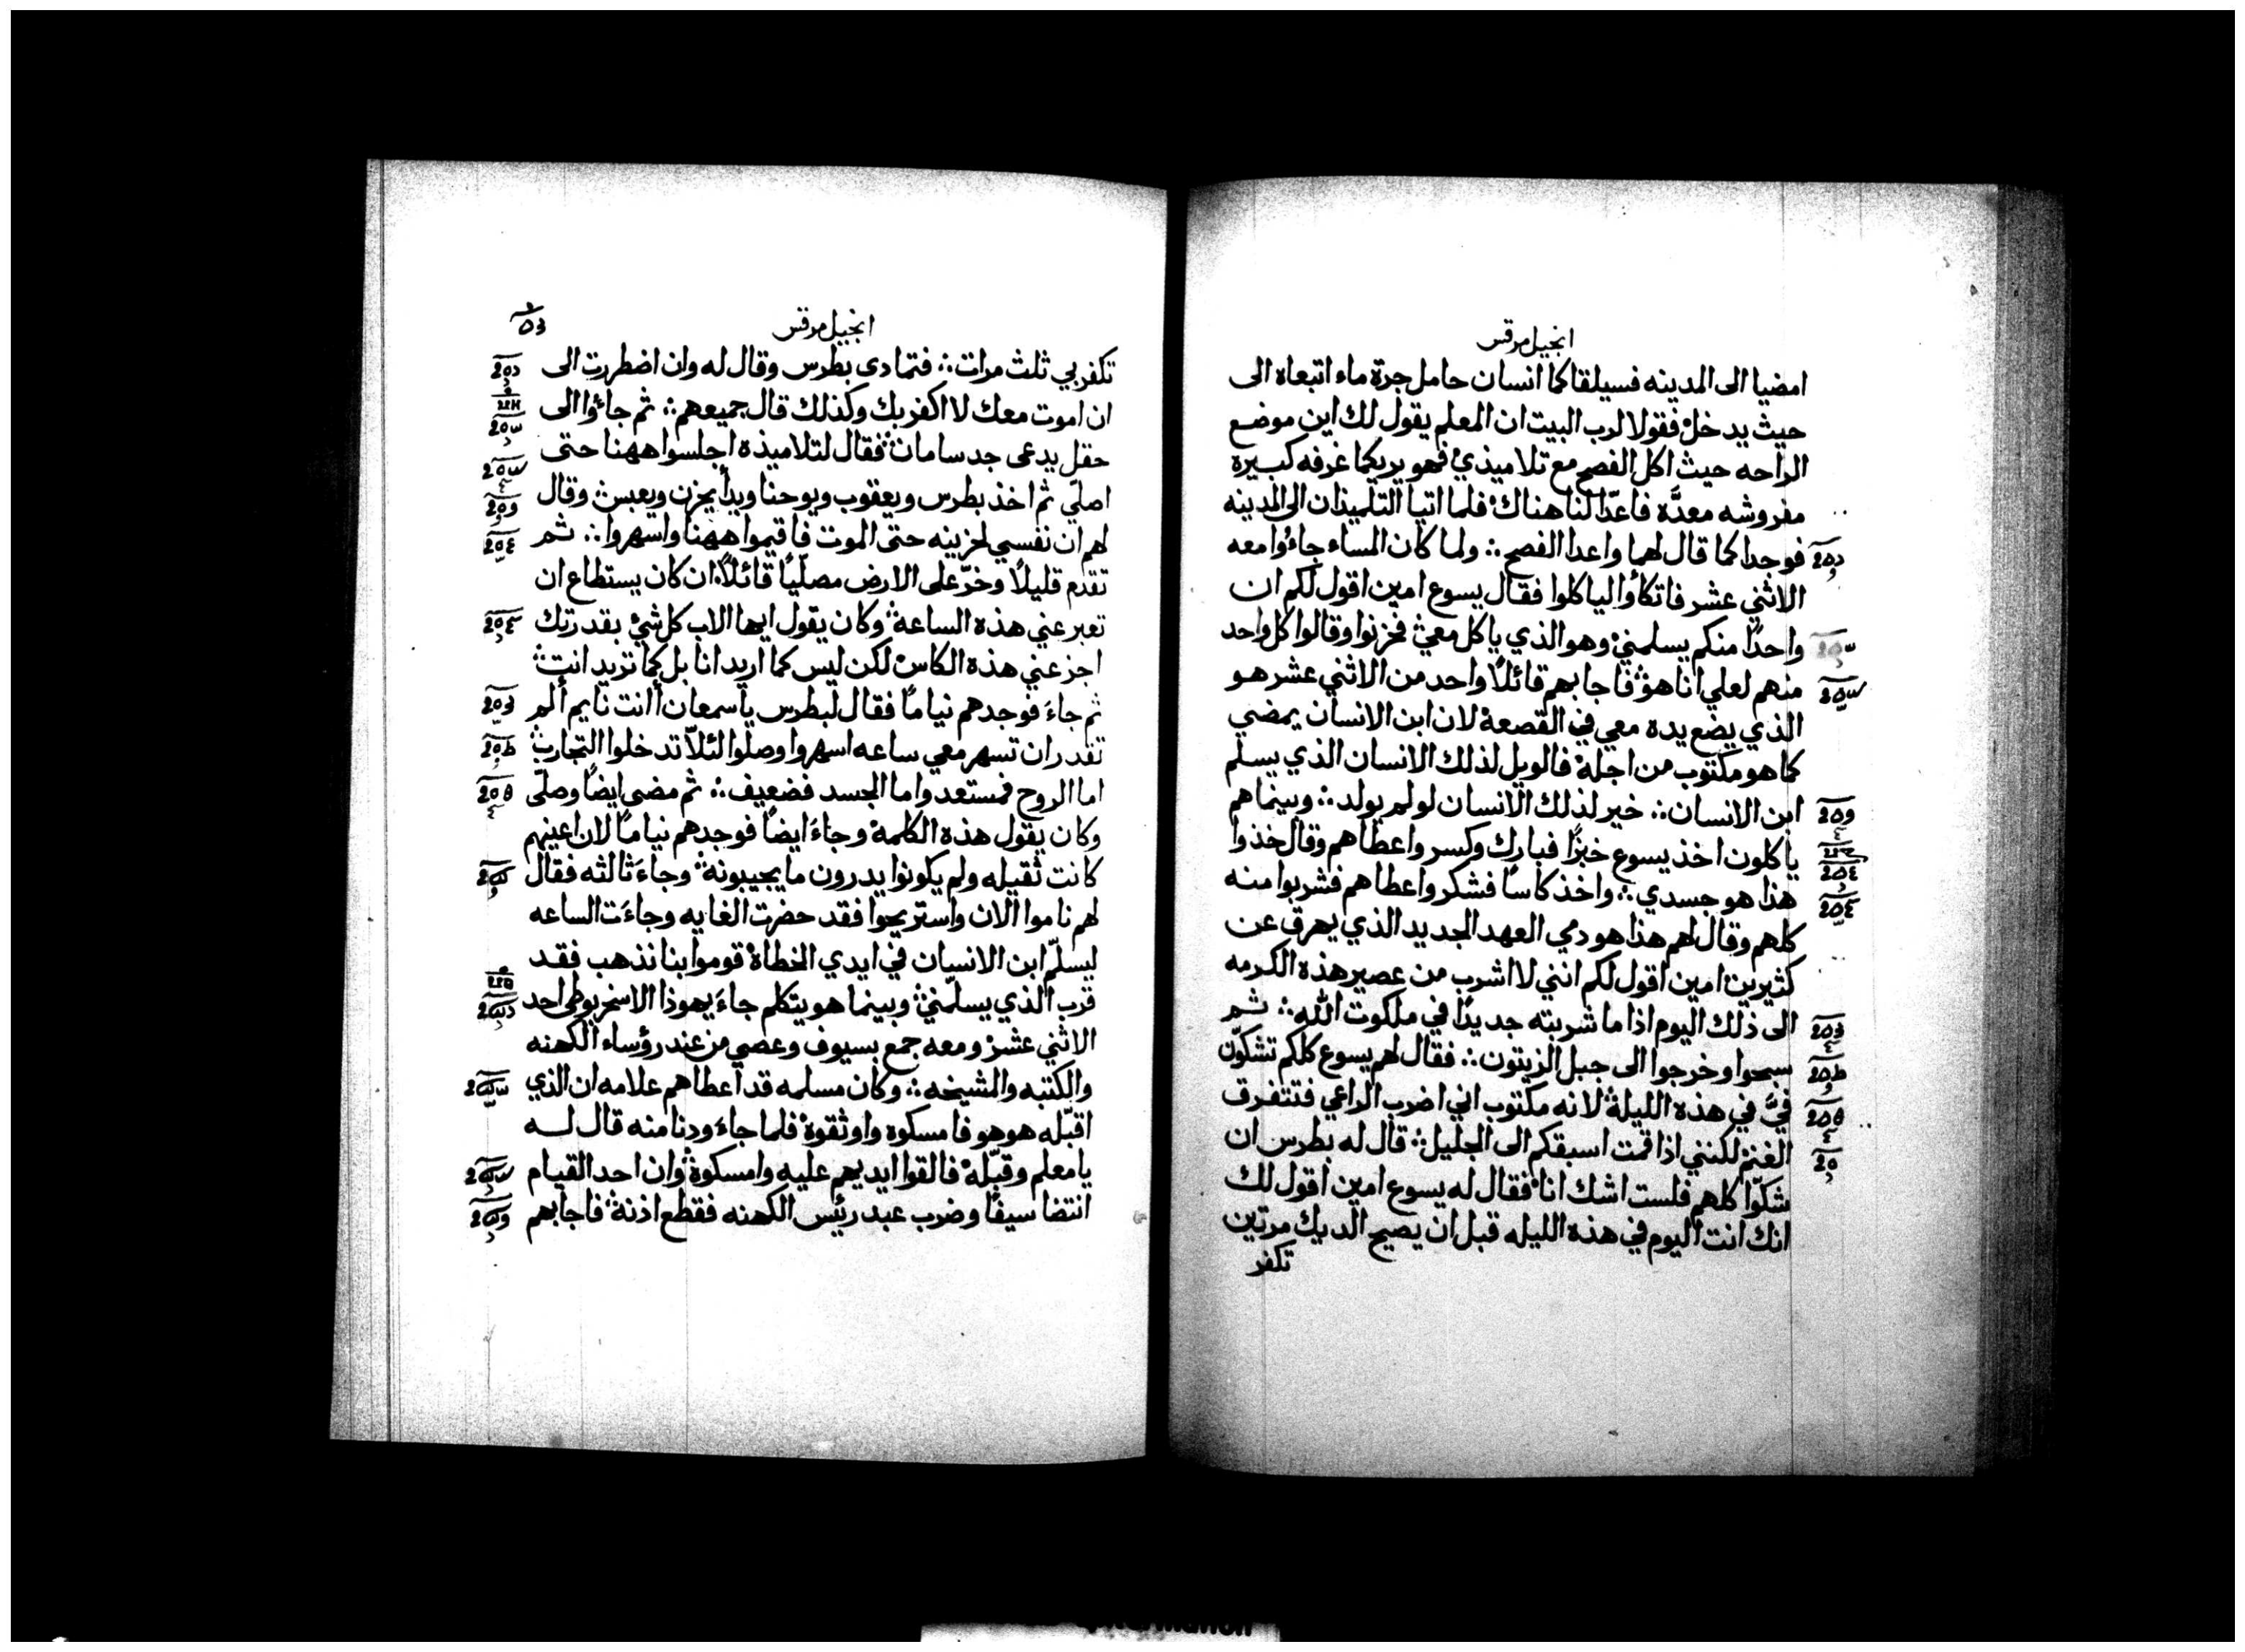 انجيل مرقس
امضيا الى المدينه فسيلقاكما انسان حامل جرة ماء اتبعاه الى
حيث يدخل فقولا لرب البيت ان المعلم يقول لك اين موضع
الراحه حيث اكل الفصح مع تلاميذي فهو يريكما غرفه كبيره
مفروشه معدَّه فاعدّا لنا هناك فلما اتيا التلميذان الى المدينه
فوجدا كما قال لهما واعدا الفصح ؞ ولما كان المساء جاءُوا معه
الاثني عشر فاتكأوا لياكلوا فقال يسوع امين اقول لكم ان
واحدًا منكم يسلمني وهو الذي ياكل معي فحزنوا وقالوا كل واحد
منهم لعلي انا هو فاجابهم قائلاً واحد من الاثني عشر هو
الذي يضع يده معي في القصعة لان ابن الانسان يمضي
كما هو مكتوب من اجلة فالويل لذلك الانسان الذي يسلم
ابن الانسان ؞ خير لذلك الانسان لو لم يولد ؞ وبينما هم
ياكلون اخذ يسوع خبزًا فبارك وكسر واعطاهم وقال خذوا
هذا هو جسدي ؞ واخذ كاسًا فشكر واعطاهم فشربوا منه
كلهم وقال لهم هذا هو دمي العهد الجديد الذي يهرق عن
كثيرين امين اقول لكم انني لا اشرب من عصير هذه الكرمه
الى ذلك اليوم اذا ما شربته جديدًا في ملكوت الله ؞ ثم
سبحوا وخرجوا الى جبل الزيتون ؞ فقال لهم يسوع كلكم تشكّون
فيَّ في هذه الليلة لانه مكتوب اني اضرب الراعي فتتفرق
الغنم لكنني اذا قمت اسبقكم الى الجليل ؞ قال له بطرس ان
شكّوا كلهم فلست اشك انا فقال له يسوع امين اقول لك
انك انت اليوم في هذه الليله قبل ان يصيح الديك مرتين
تكفر
انجيل مرقس
تكفر بي ثلث مرات ؞ فتمادى بطرس وقال له وان اضطررت الى
ان اموت معك لا اكفر بك وكذلك قال جميعهم ؞ ثم جاءُوا الى
حقل يدعى جدسامان فقال لتلاميذه اجلسوا ههنا حتى
اصلّي ثم اخذ بطرس ويعقوب ويوحنا وبدأ يحزن ويعبس وقال
لهم ان نفسي لحزينه حتى الموت فاقيموا ههنا واسهروا ؞ ثم
تقدم قليلاً وخرّ على الارض مصلّيًا قائلاً ان كان يستطاع ان
تعبر عني هذه الساعة وكان يقول ايها الاب كل شيء بقدرتك
اجز عني هذه الكاس لكن ليس كما اريد انا بل كما تريد انت
ثم جاءَ فوجدهم نيامًا فقال لبطرس يا سمعان أانت نايم ألم
تقدر ان تسهر معي ساعه اسهروا وصلّوا لئلاّ تدخلوا التجارب
اما الروح فمستعد واما الجسد فضعيف ؞ ثم مضى ايضًا وصلّى
وكان يقول هذه الكلمة وجاءَ ايضًا فوجدهم نيامًا لان اعينهم
كانت ثقيله ولم يكونوا يدرون ما يجيبونة وجاءَ ثالثه فقال
لهم ناموا الان واستريحوا فقد حضرت الغايه وجاءَت الساعه
ليسلّم ابن الانسان في ايدي الخطاة قوموا بنا نذهب فقد
قرب الذي يسلّمني وبينما هو يتكلم جاءَ يهوذا الاسخريوطي احد
الاثني عشر ومعه جمع بسيوف وعصي من عند رؤساء الكهنه
والكتبه والمشيخه ؞ وكان مسلمه قد اعطاهم علامه ان الذي
اقبّله هو هو فامسكوه واوثقوة فلما جاءَ ودنا منه قال له
يا معلم وقبّلة فالقوا ايديهم عليه وامسكوة وان احد القيام
انتضا سيفًا وضرب عبد رئيس الكهنه فقطع اذنة فاجابهم